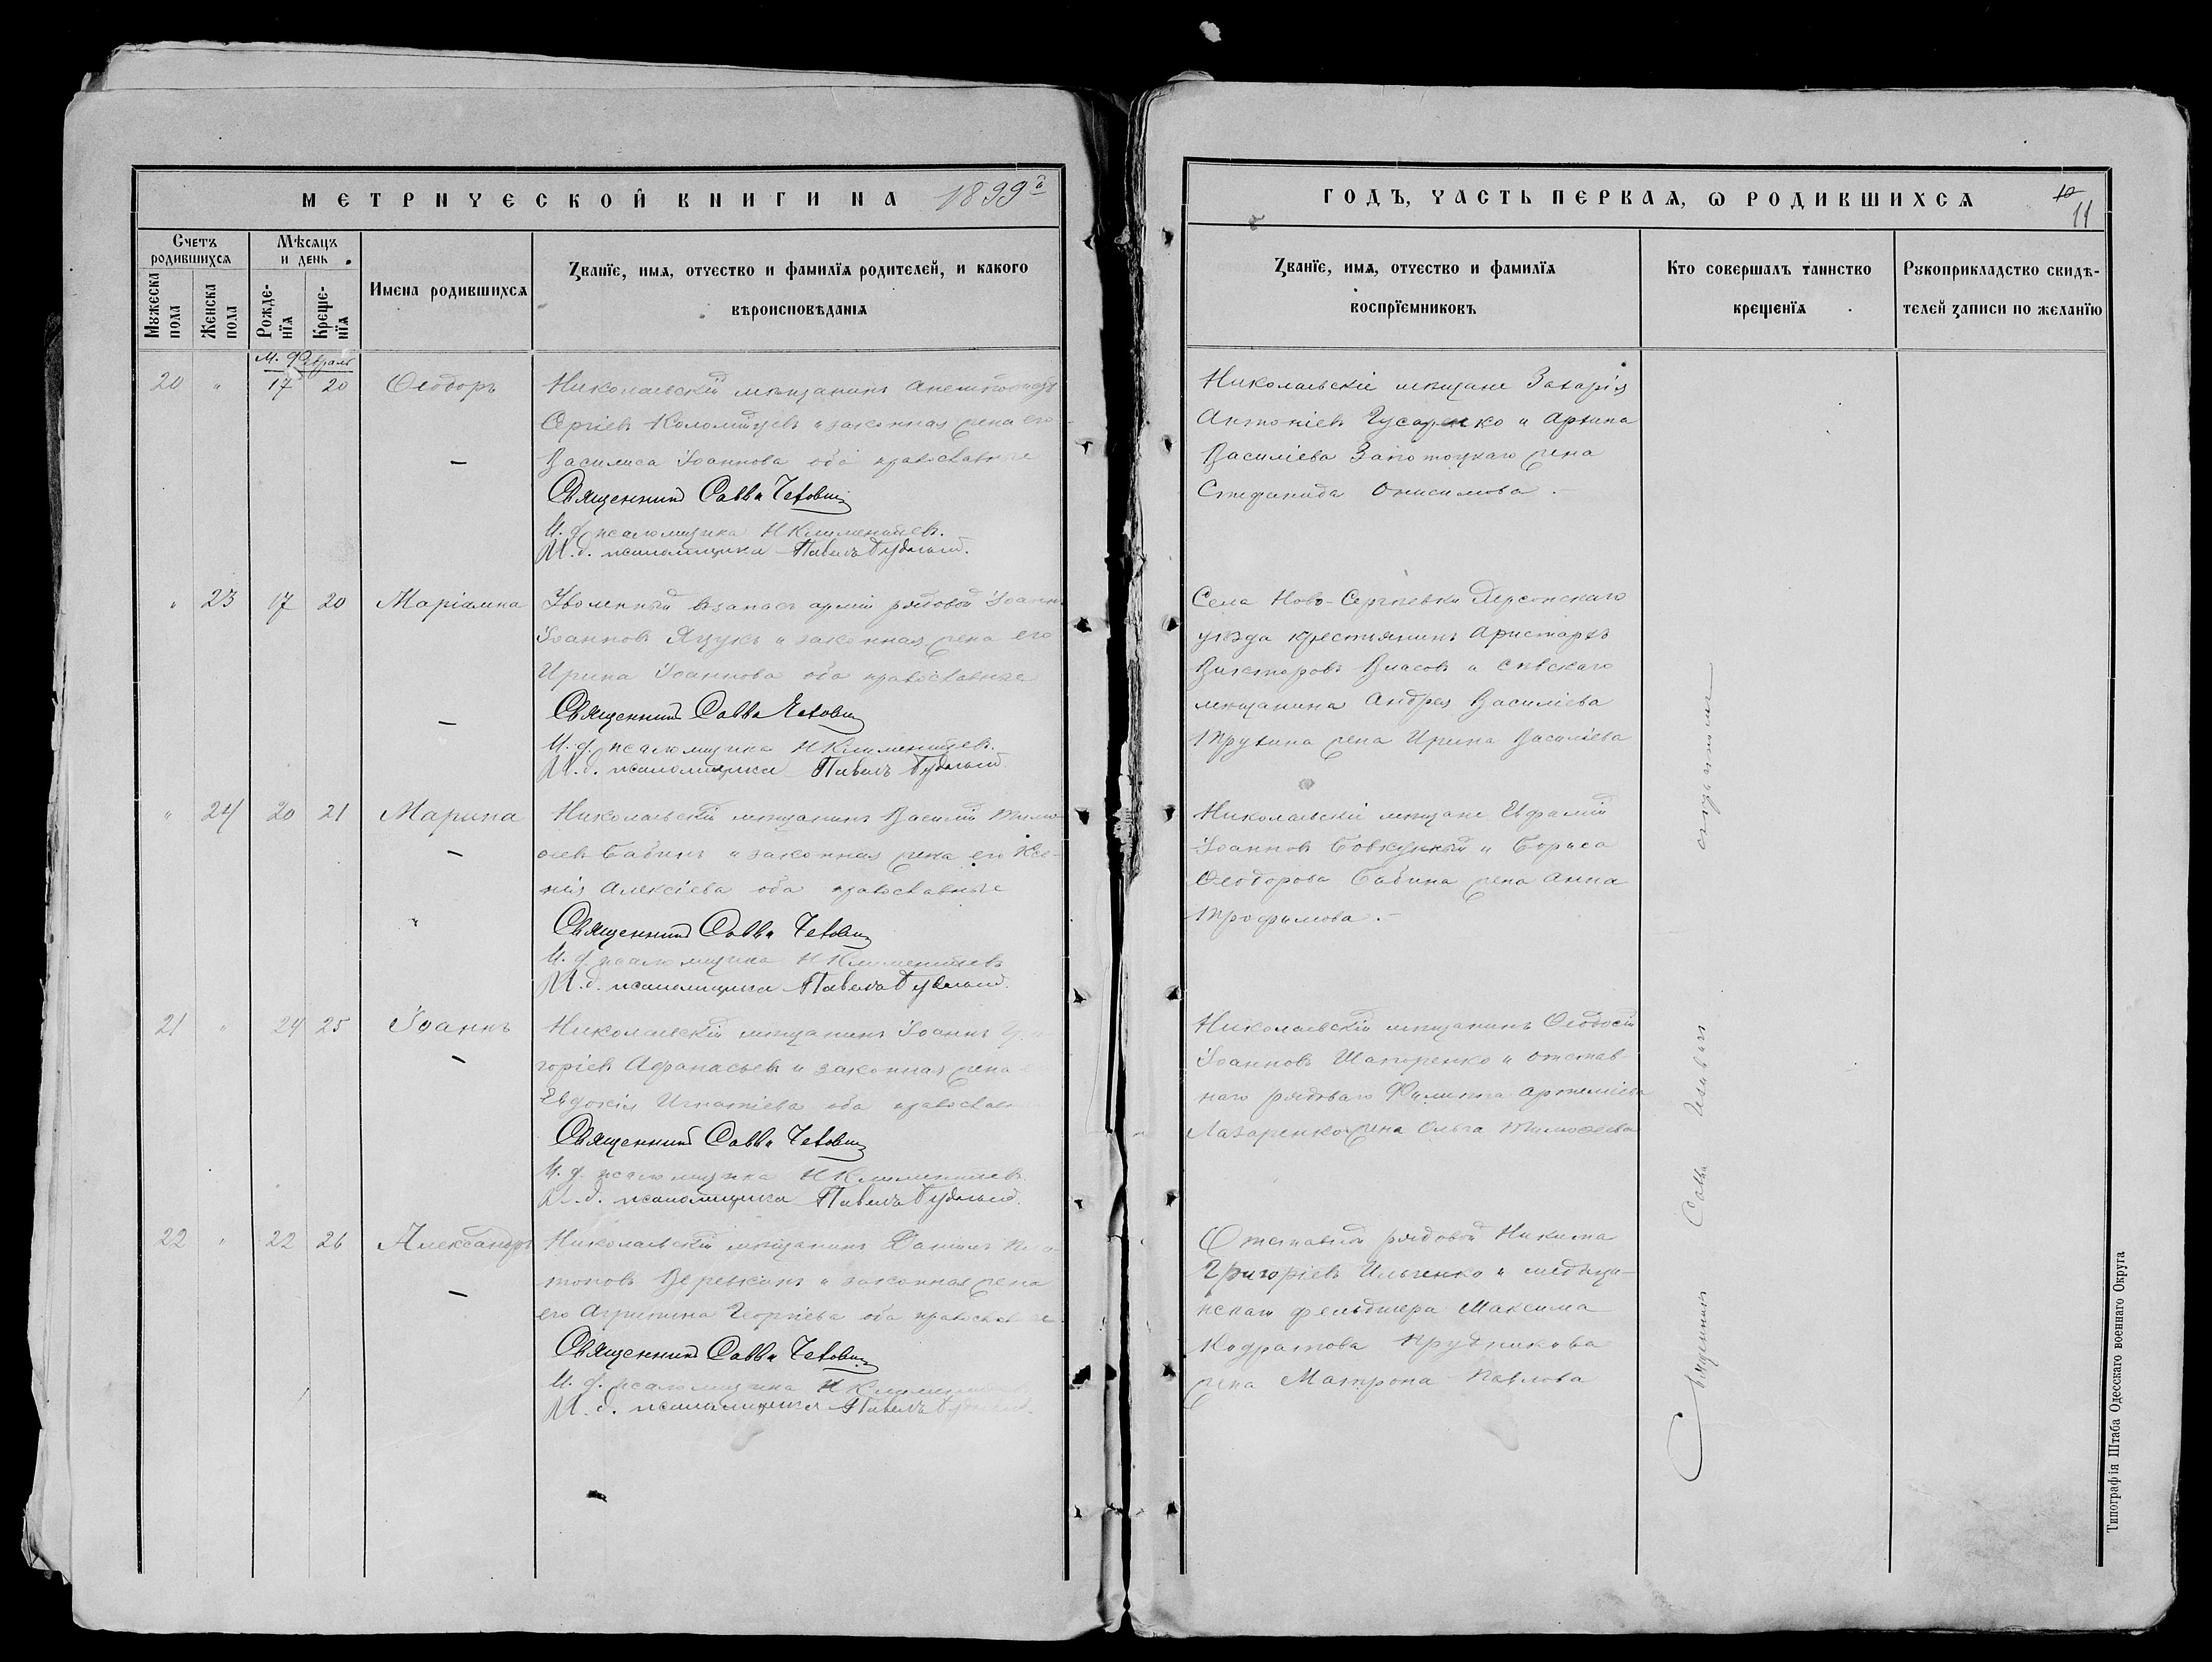 МЕТРИЧЕСКОЙ КНИГИ НА 1899й
Счетъ родившихся
Мѣсяцъ и день
Имена родившихся
Званїе, имя, отчество и фамилїя родителей, и какого
вѣроисповѣданїя
Мужеска пола
Женска пола
Рожде-нїя
Креще-нїя
М. Февраль
20 " 17 20 Ѳеодоръ Николаевскій мѣщанинъ
Сергіевъ Коломійцевъ и законная жена его
Василиса Іоаннова оба православные
Священникъ Савва Чехович
И. д. псаломщика Н Климентьевъ.
И. д. псаломщика Павелъ
" 23 17 20 Маріамна Уволенный въ запасъ арміи рядовой Іоаннъ
Іоанновъ Яцукъ и законная жена его
Ирина Іоаннова оба православные
Священникъ Савва Чехович
И. д. псаломщика Н Климентьевъ.
И. д. псаломщика Павелъ
" 24 20 21 Марина Николаевскій мѣщанинъ Василій Тимо-
ѳеевъ Бабинъ и законная жена его Ксе-
нія Алексіева оба православные
Священникъ Савва Чехович
И. д. псаломщика Н Климентьевъ
И. д. псаломщика Павелъ
21 " 24 25 Іоаннъ Николаевскій мѣщанинъ Іоаннъ
горіевъ Афанасьевъ и законная жена
Евдокія Игнатіева оба православн
Священникъ Савва Чехович
И. д. псаломщика Н Климентьевъ
И. д. псаломщика Павелъ
22 " 22 26 Александръ Николаевскій мѣщанинъ Даніилъ
тоновъ Веревкинъ и законная жена
его Агрипина Георгіева оба православ
Священникъ Савва Чехович
И. д. псаломщика Н
И. д. псаломщика Павелъ
ГОДЪ, ЧАСТЬ ПЕРВАЯ, Ѡ РОДИВШИХСЯ
10
11
Званїе, имя, отчество и фамилїя
воспрїемниковъ
Кто совершалъ таинство
крещенїя
Рукоприкладство свидѣ-
телей записи по желанїю
Николаевскіе мѣщане Захарія
Антоніевъ Гусаренко и Архипа
Василіева Запотоцкаго жена
Стефанида Онисимова.
Села Ново-Сергіевки Херсонскаго
уѣзда крестьянинъ Аристархъ
Викторовъ Власовъ и Сѣвскаго
мѣщанина Андрея Василіева
Трухина жена Ирина Василіева
Николаевскіе мѣщане Евфимій
Іоанновъ и Бориса
Ѳеодорова Бабина жена Анна
Трофимова.
Николаевскій мѣщанинъ Ѳеодосій
Іоанновъ Шапоренко и отстав-
наго рядоваго Филиппа Артеміева
Лазаренко жена Ольга Тимоѳеева
Отставной рядовой Никита
Григоріевъ Ильченко и медици-
нскаго фельдшера Максима
Кодратова Прудникова
жена Матрона Павлова
Священникъ Савва Чехович
Типографія Штаба Одесскаго военнаго Округа